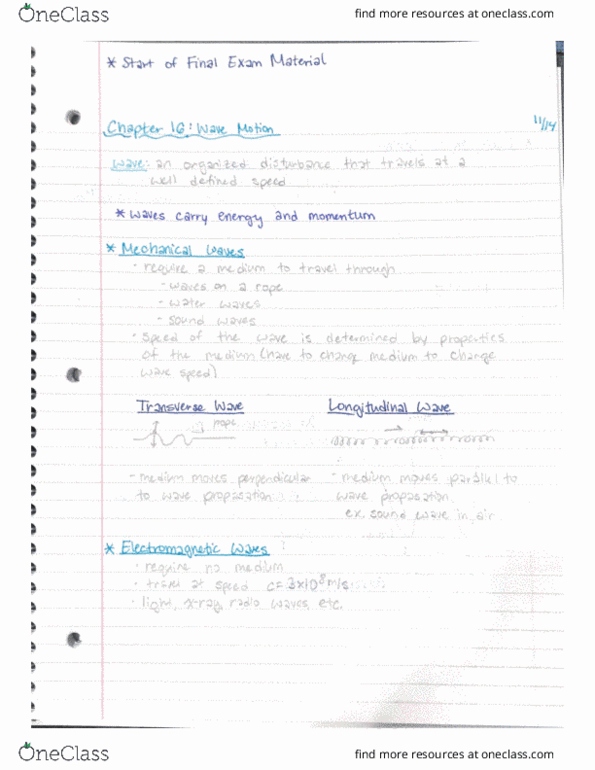 OneClass
find more resources at oneclass.com
* Start of Final Exam Material
11/14
Chapter 16: Wave Motion
Wave: an organized disturbance that travels at a
well defined speed
* waves carry energy and momentum
* Mechanical Waves
· require a medium to travel through
- waves on a rope
- water waves
- sound waves
· speed of the wave is determined by properties
of the medium (have to change medium to change
wave speed)
Transverse Wave
Longitudinal Wave
rope
- medium moves perpendicular
to wave propagation
- medium moves parallel to
wave propagation
ex. sound wave in air
* Electromagnetic Waves
· require no medium
· travel at speed c=3x10⁸m/s
· light, x-ray, radio waves, etc.
OneClass
find more resources at oneclass.com